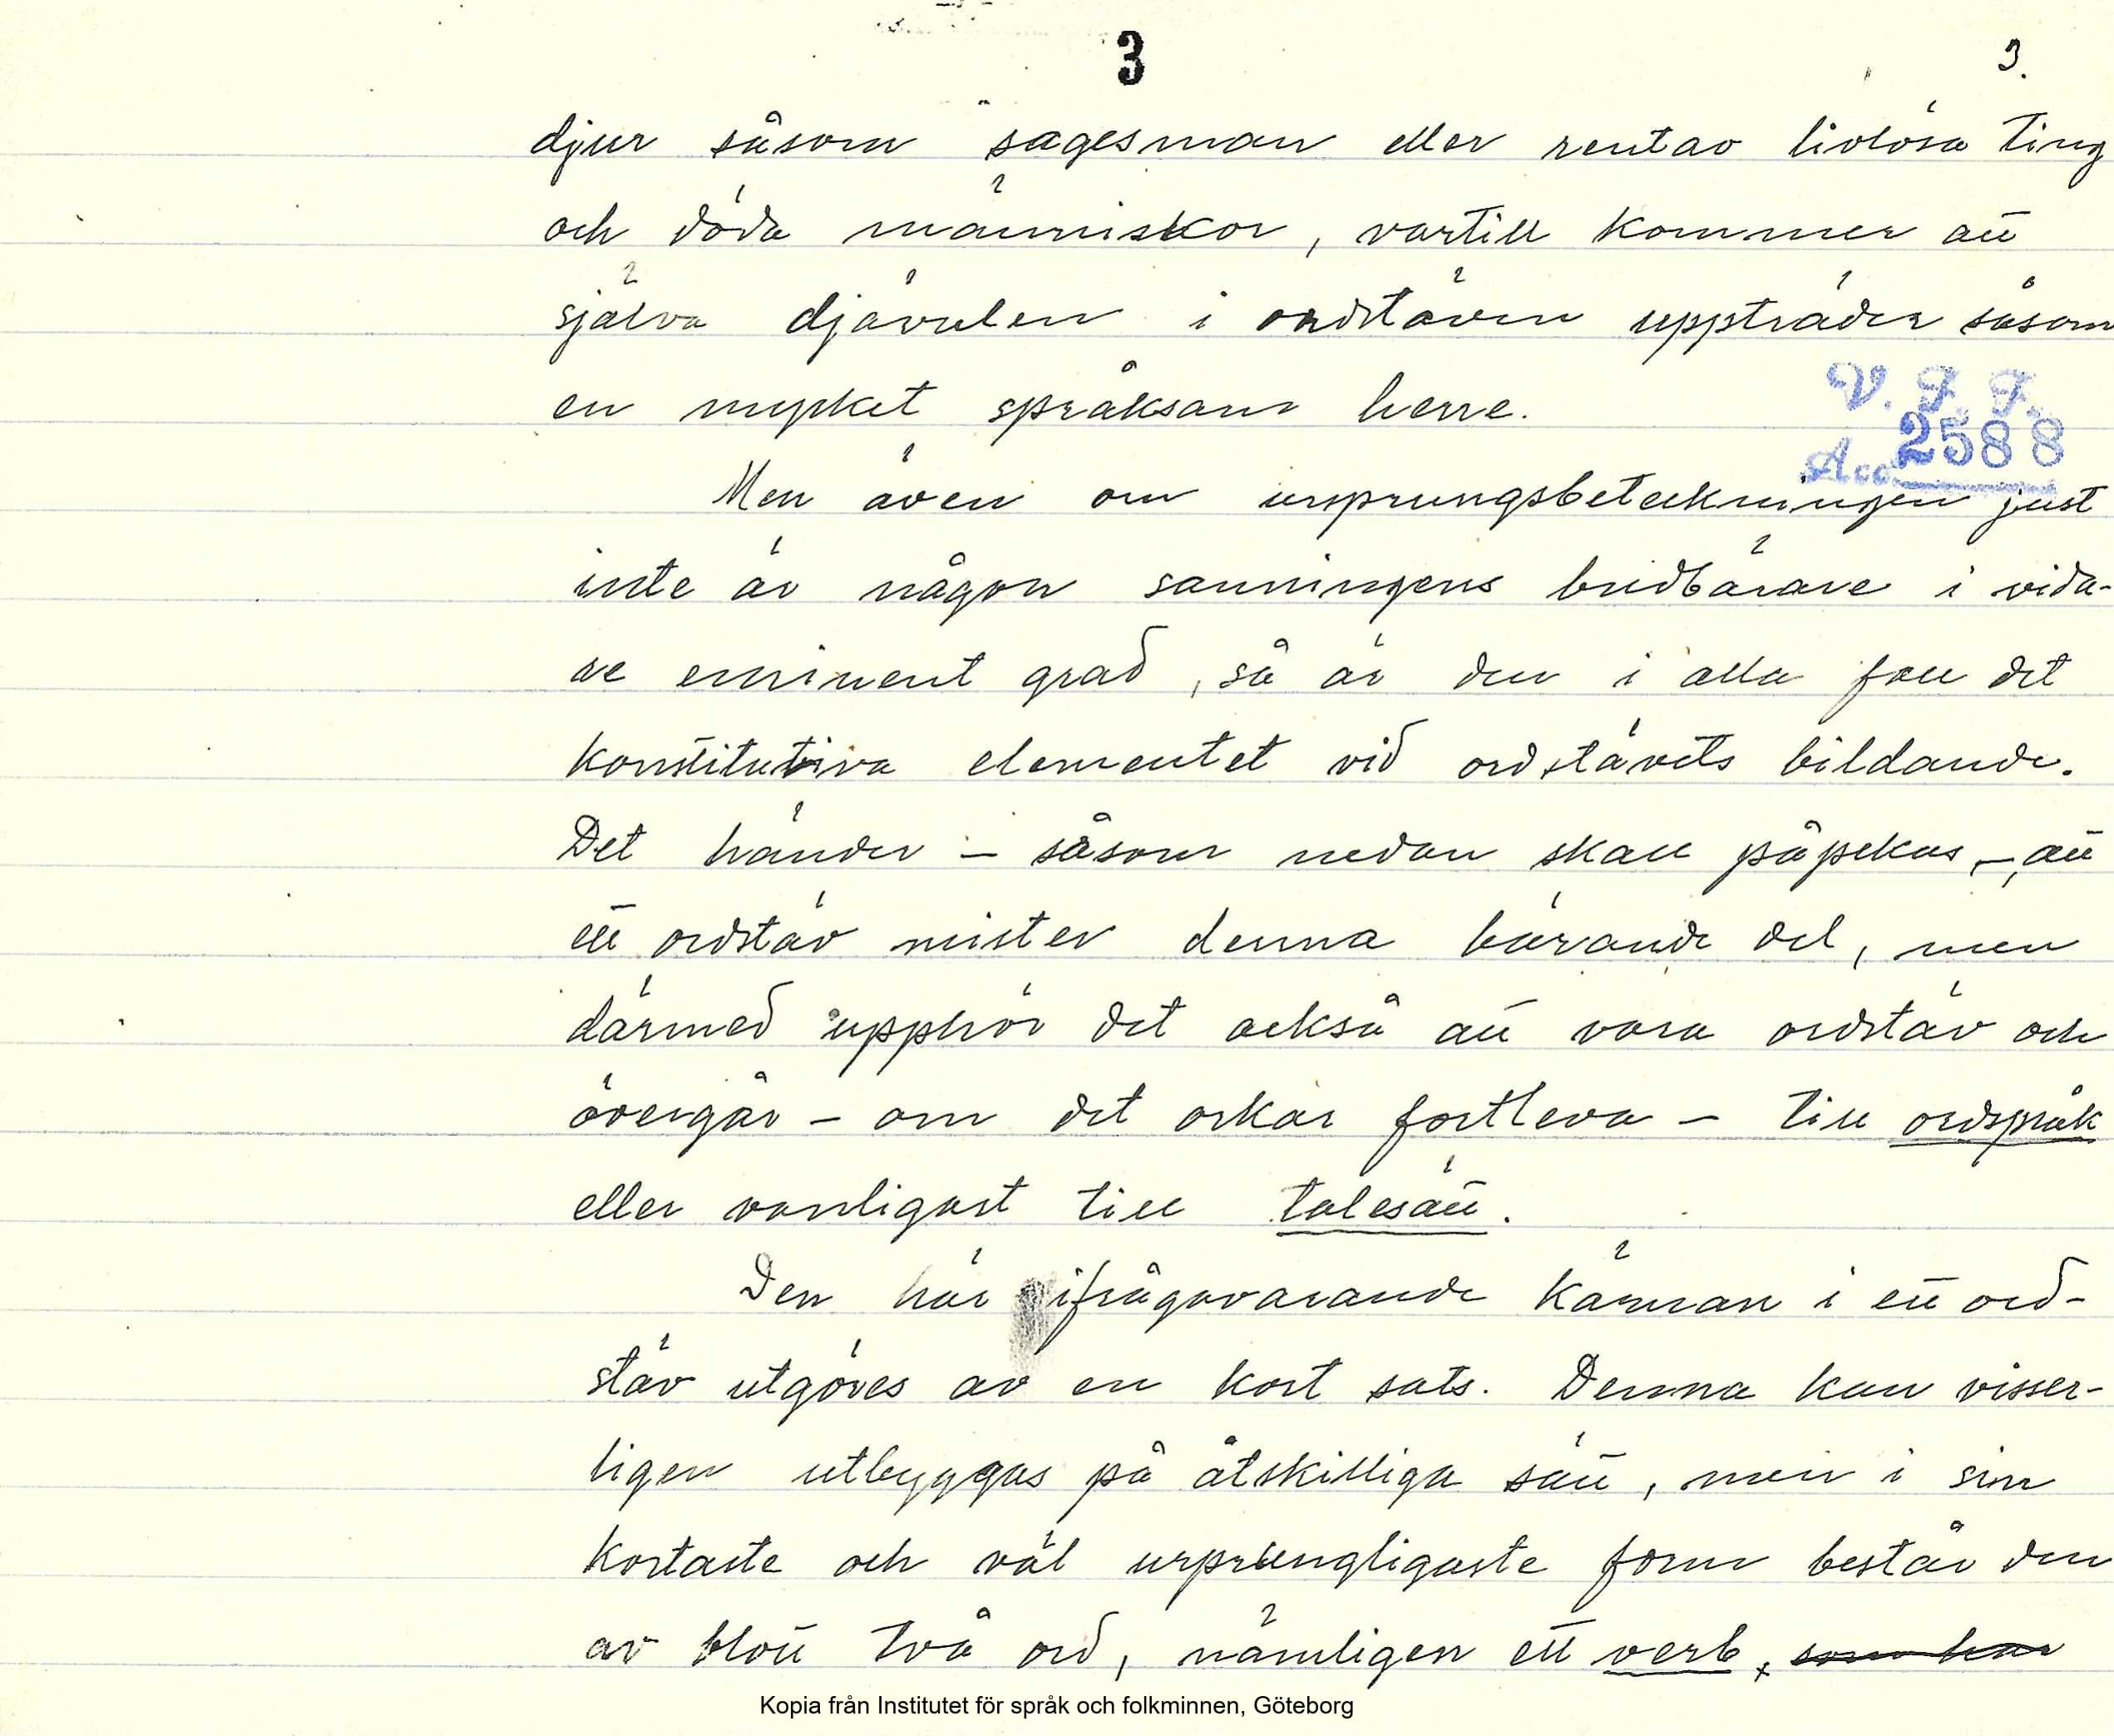 3
3.
djur såsom sagesman eller rentav livlösa ting
och döda människor, vartill kommer att
själva djävulen i ordstäven uppträder såsom
en mycket språksam herre.
V. F. F.
Acc. 2588
Men även om ursprungsbeteckningen just
inte är någon sanningens budbärare i vida-
re eminent grad, så är den i alla fall det
konstitutiva elementet vid ordstävets bildande.
Det händer – såsom nedan skall påpekas –, att
ett ordstäv mister denna bärande del, men
därmed upphör det också att vara ordstäv och
övergår – om det orkar fortleva – till ordspråk
eller vanligast till talesätt.
Den här ifrågavarande kärnan i ett ord-
stäv utgöres av en kort sats. Denna kan visser-
ligen utbyggas på åtskilliga sätt, men i sin
kortaste och väl ursprungligaste form består den
av blott två ord, nämligen ett verb, som har
Kopia från Institutet för språk och folkminnen, Göteborg